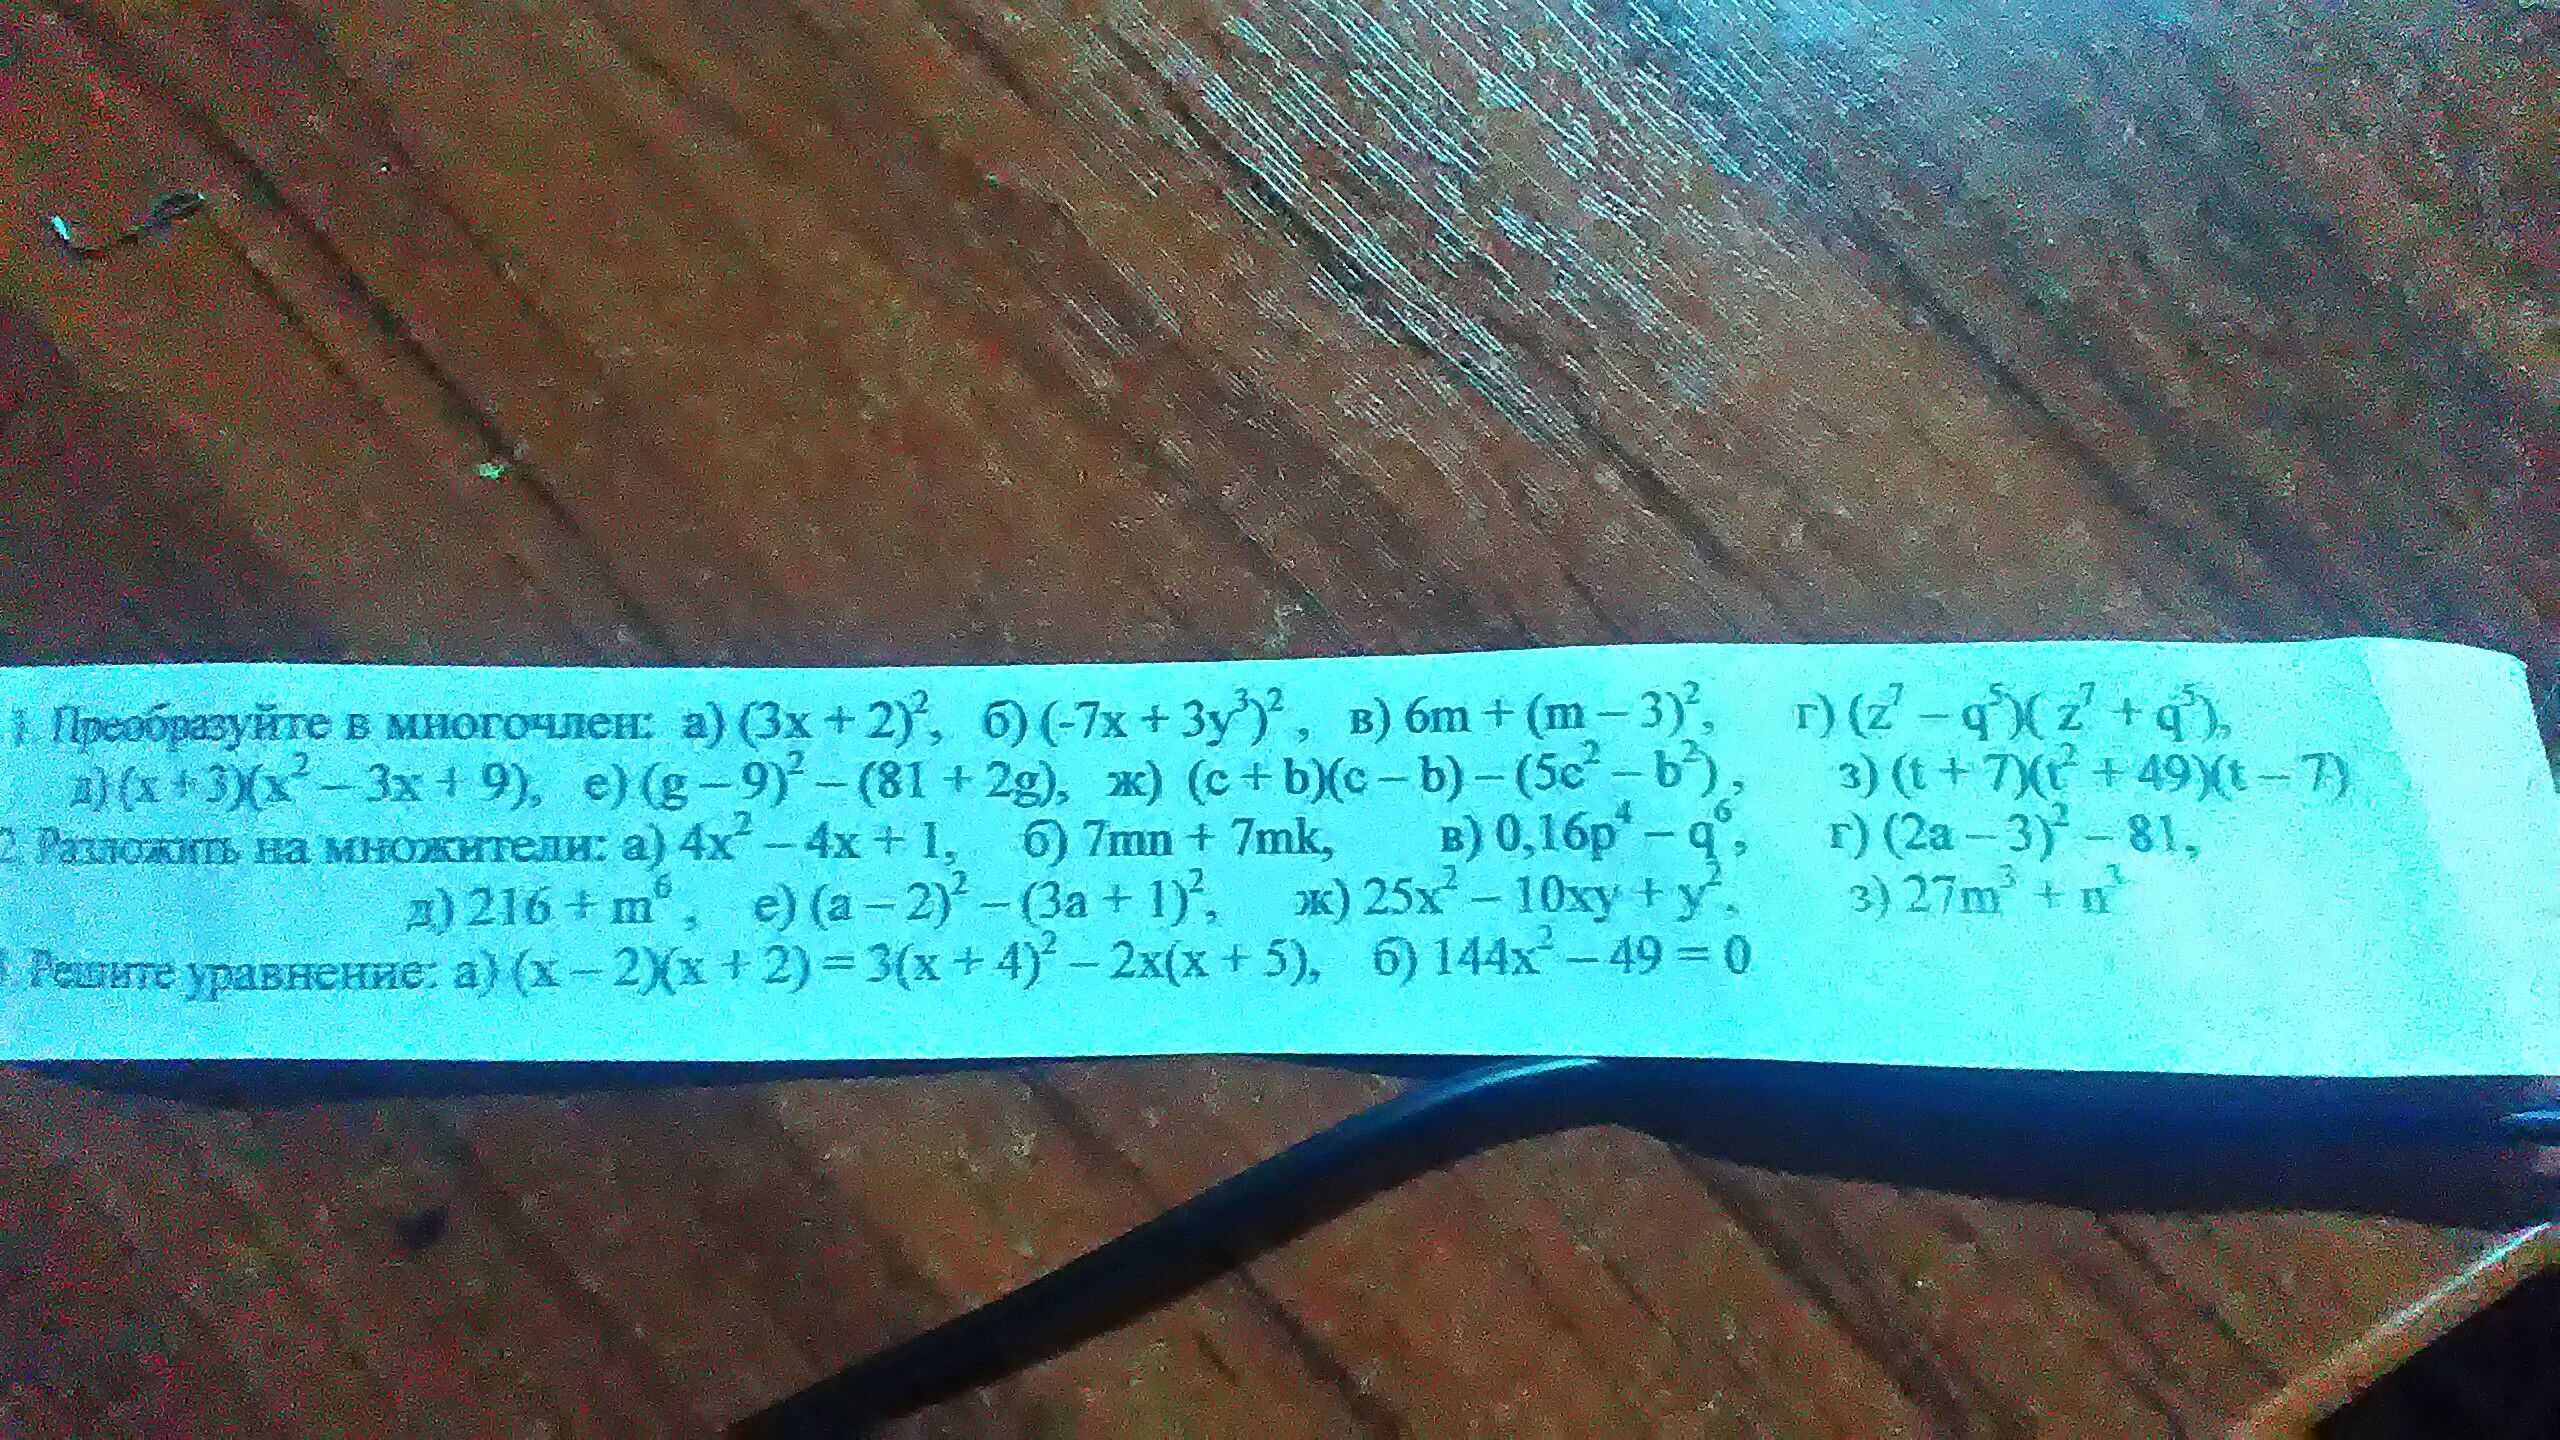 1. Преобразуйте в многочлен: а) (3x + 2)², б) (-7x + 3y³)², в) 6m + (m – 3)², г) (z⁷ – q⁵)( z⁷ + q⁵),
д) (x + 3)(x² – 3x + 9), е) (g – 9)² – (81 + 2g), ж) (c + b)(c – b) – (5c² – b²), з) (t + 7)(t² + 49)(t – 7)
2. Разложить на множители: а) 4x² – 4x + 1, б) 7mn + 7mk, в) 0,16p⁴ – q⁶, г) (2a – 3)² – 81,
д) 216 + m⁶, е) (a – 2)² – (3a + 1)², ж) 25x² – 10xy + y², з) 27m³ + n³
Решите уравнение: а) (x – 2)(x + 2) = 3(x + 4)² – 2x(x + 5), б) 144x² – 49 = 0